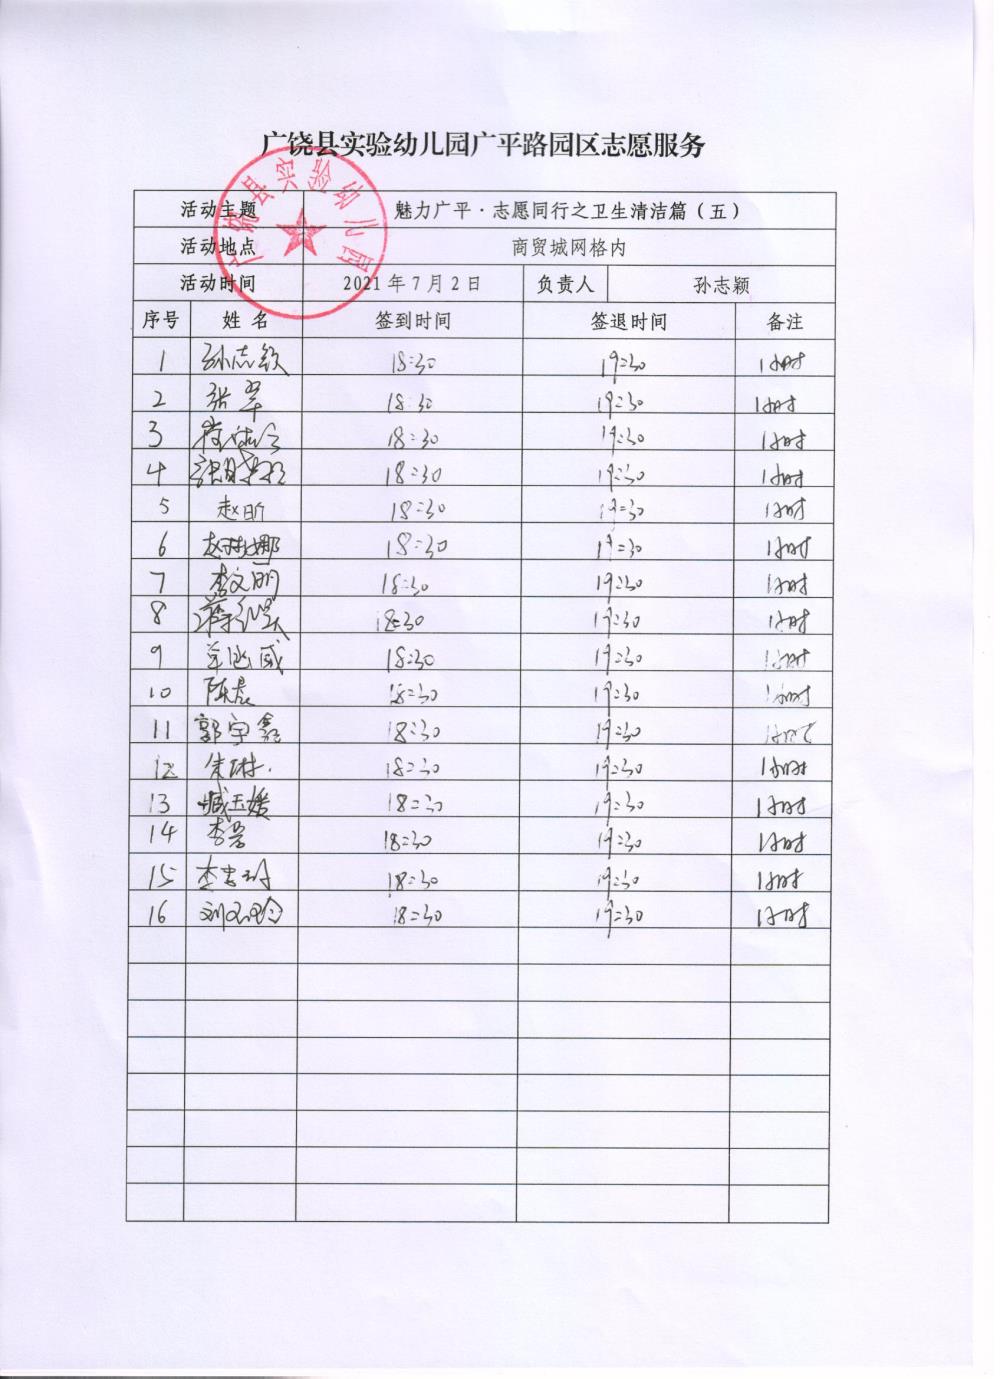 广饶县实验幼儿园广平路园区志愿服务
广饶县实验幼儿园
活动主题 魅力广平·志愿同行之卫生清洁篇（五）
活动地点 商贸城网格内
活动时间 2021年7月2日 负责人 孙志颖
序号 姓名 签到时间 签退时间 备注
1 18:30 19:30 1小时
2 张翠 18:30 19:30 1小时
3 18:30 19:30 1小时
4 18:30 19:30 1小时
5 赵昕 18:30 19:30 1小时
6 赵娜 18:30 19:30 1小时
7 李文明 18:30 19:30 1小时
8 18:30 19:30 1小时
9 18:30 19:30 1小时
10 陈晨 18:30 19:30 1小时
11 郭宇鑫 18:30 19:30 1小时
12 朱琳 18:30 19:30 1小时
13 臧玉媛 18:30 19:30 1小时
14 18:30 19:30 1小时
15 18:30 19:30 1小时
16 18:30 19:30 1小时